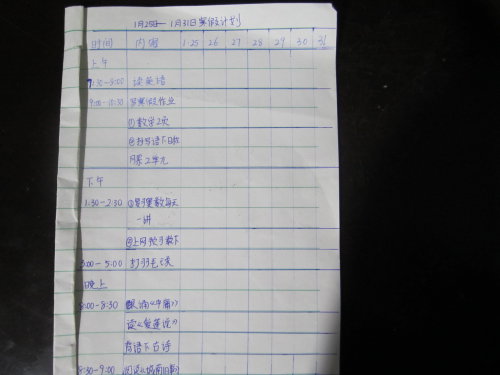 1月25日—1月31日寒假计划
时间 内容 1.25 26 27 28 29 30 31
上午
7:30-8:00 读英语
9:00-10:30 写寒假作业
①数学2页
②抄写语下日积
月累2单元
下午
1:30-2:30 每天
一讲
②上网 数下
3:00-5:00 打羽毛球
晚上
8:00-8:30 朗诵
读《爱莲说》
背语下古诗
8:30-9:00 阅读《城南旧事》